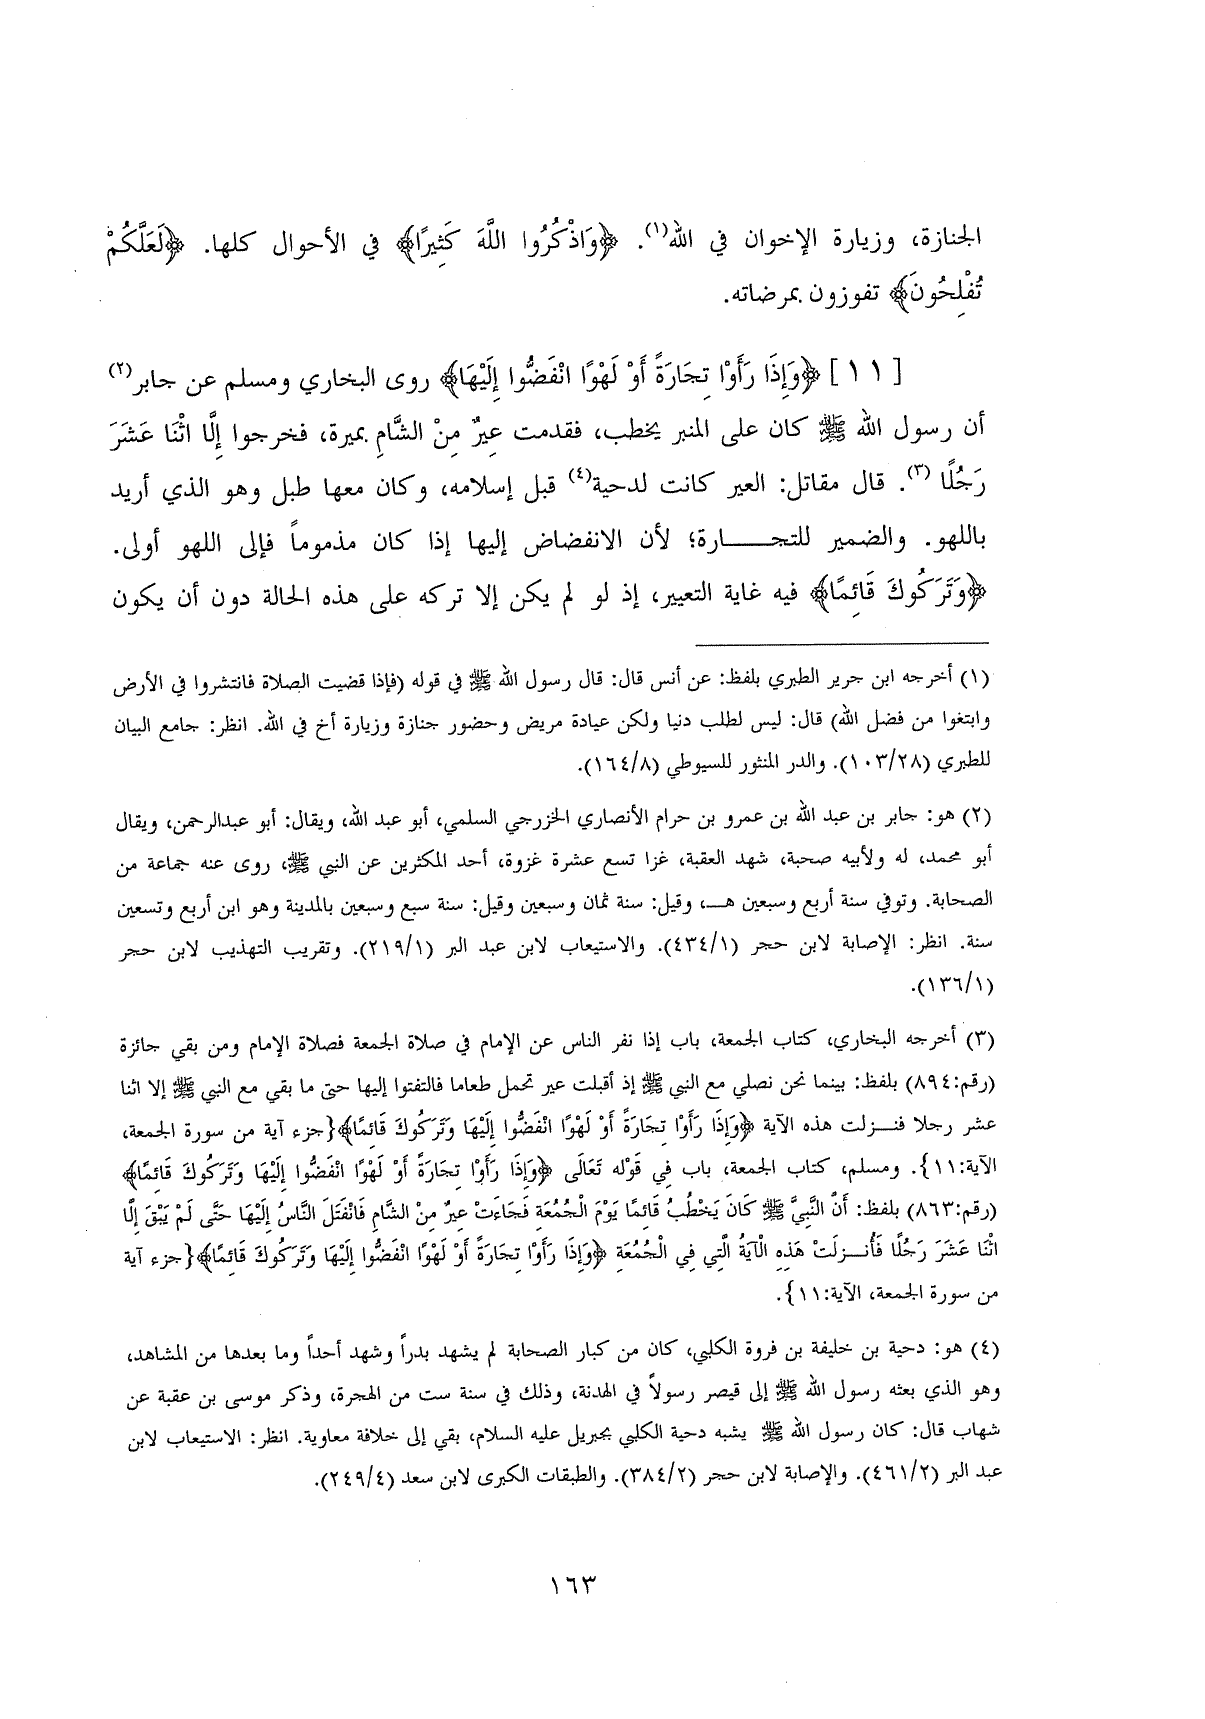 الجنازة، وزيارة الإخوان في الله(١). ﴿وَاذْكُرُوا اللَّهَ كَثِيرًا﴾ في الأحوال كلها. ﴿لَعَلَّكُمْ
تُفْلِحُونَ﴾ تفوزون بمرضاته.
[١١] ﴿وَإِذَا رَأَوْا تِجَارَةً أَوْ لَهْوًا انْفَضُّوا إِلَيْهَا﴾ روى البخاري ومسلم عن جابر(٢)
أن رسول الله ﷺ كان على المنبر يخطب، فقدمت عِيرٌ مِنْ الشَّامِ بميرة، فخرجوا إِلَّا اثْنَا عَشَرَ
رَجُلًا (٣). قال مقاتل: العير كانت لدحية(٤) قبل إسلامه، وكان معها طبل وهو الذي أريد
باللهو. والضمير للتجـــــارة؛ لأن الانفضاض إليها إذا كان مذموماً فإلى اللهو أولى.
﴿وَتَرَكُوكَ قَائِمًا﴾ فيه غاية التعيير، إذ لو لم يكن إلا تركه على هذه الحالة دون أن يكون
(١) أخرجه ابن جرير الطبري بلفظ: عن أنس قال: قال رسول الله ﷺ في قوله (فإذا قضيت الصلاة فانتشروا في الأرض
وابتغوا من فضل الله) قال: ليس لطلب دنيا ولكن عيادة مريض وحضور جنازة وزيارة أخ في الله. انظر: جامع البيان
للطبري (١٠٣/٢٨). والدر المنثور للسيوطي (١٦٤/٨).
(٢) هو: جابر بن عبد الله بن عمرو بن حرام الأنصاري الخزرجي السلمي، أبو عبد الله، ويقال: أبو عبدالرحمن، ويقال
أبو محمد، له ولأبيه صحبة، شهد العقبة، غزا تسع عشرة غزوة، أحد المكثرين عن النبي ﷺ، روى عنه جماعة من
الصحابة. وتوفي سنة أربع وسبعين هــ، وقيل: سنة ثمان وسبعين وقيل: سنة سبع وسبعين بالمدينة وهو ابن أربع وتسعين
سنة. انظر: الإصابة لابن حجر (٤٣٤/١). والاستيعاب لابن عبد البر (٢١٩/١). وتقريب التهذيب لابن حجر
(١٣٦/١).
(٣) أخرجه البخاري، كتاب الجمعة، باب إذا نفر الناس عن الإمام في صلاة الجمعة فصلاة الإمام ومن بقي جائزة
(رقم:٨٩٤) بلفظ: بينما نحن نصلي مع النبي ﷺ إذ أقبلت عير تحمل طعاما فالتفتوا إليها حتى ما بقي مع النبي ﷺ إلا اثنا
عشر رجلا فنــزلت هذه الآية ﴿وَإِذَا رَأَوْا تِجَارَةً أَوْ لَهْوًا انْفَضُّوا إِلَيْهَا وَتَرَكُوكَ قَائِمًا﴾{جزء آية من سورة الجمعة،
الآية:١١}. ومسلم، كتاب الجمعة، باب فِي قَوْله تَعَالَى ﴿وَإِذَا رَأَوْا تِجَارَةً أَوْ لَهْوًا انْفَضُّوا إِلَيْهَا وَتَرَكُوكَ قَائِمًا﴾
(رقم:٨٦٣) بلفظ: أَنَّ النَّبِيَّ ﷺ كَانَ يَخْطُبُ قَائِمًا يَوْمَ الْجُمُعَةِ فَجَاءَتْ عِيرٌ مِنْ الشَّامِ فَانْفَتَلَ النَّاسُ إِلَيْهَا حَتَّى لَمْ يَبْقَ إِلَّا
اثْنَا عَشَرَ رَجُلًا فَأُنــزِلَتْ هَذِهِ الْآيَةُ الَّتِي فِي الْجُمُعَةِ ﴿وَإِذَا رَأَوْا تِجَارَةً أَوْ لَهْوًا انْفَضُّوا إِلَيْهَا وَتَرَكُوكَ قَائِمًا﴾{جزء آية
من سورة الجمعة، الآية:١١}.
(٤) هو: دحية بن خليفة بن فروة الكلبي، كان من كبار الصحابة لم يشهد بدراً وشهد أحداً وما بعدها من المشاهد،
وهو الذي بعثه رسول الله ﷺ إلى قيصر رسولاً في الهدنة، وذلك في سنة ست من الهجرة، وذكر موسى بن عقبة عن
شهاب قال: كان رسول الله ﷺ يشبه دحية الكلبي بجبريل عليه السلام، بقي إلى خلافة معاوية. انظر: الاستيعاب لابن
عبد البر (٤٦١/٢). والإصابة لابن حجر (٣٨٤/٢). والطبقات الكبرى لابن سعد (٢٤٩/٤).
١٦٣